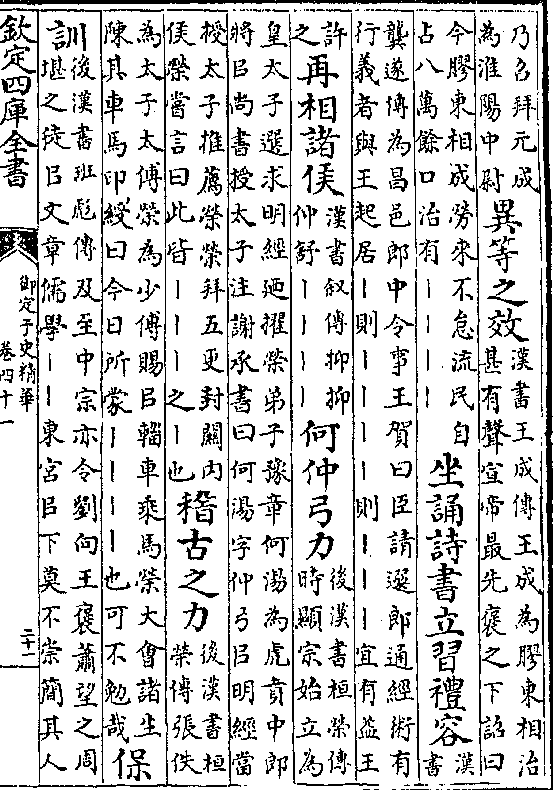 乃召拜元成
為淮陽中尉
異等之效
漢書王成傳王成為膠東相治
甚有聲宣帝最先褒之下詔曰
今膠東相成勞來不怠流民自
占八萬餘口治有丨丨丨丨
坐誦詩書立習禮容
漢
書
龔遂傳為昌邑郎中令事王賀曰臣請選郎通經術有
行義者與王起居丨則丨丨丨丨則丨丨丨宜有益王
許
之
再相諸侯
漢書叙傳抑抑
仲舒丨丨丨丨
何仲弓力
後漢書桓榮傳
時顯宗始立為
皇太子選求明經廼擢榮弟子豫章何湯為虎賁中郎
將以尚書授太子注謝承書曰何湯字仲弓以明經當
授太子推薦榮榮拜五更封關内
侯榮嘗言曰此皆丨丨丨之丨也
稽古之力
後漢書桓
榮傳張佚
為太子太傅榮為少傅賜以輜車乘馬榮大會諸生
陳其車馬印綬曰今日所蒙丨丨丨丨也可不勉哉
保
訓
後漢書班彪傳及至中宗亦令劉向王褒蕭望之周
堪之徒以文章儒學丨丨東宮以下莫不崇簡其人
欽定四庫全書
御定子史精華
卷四十一